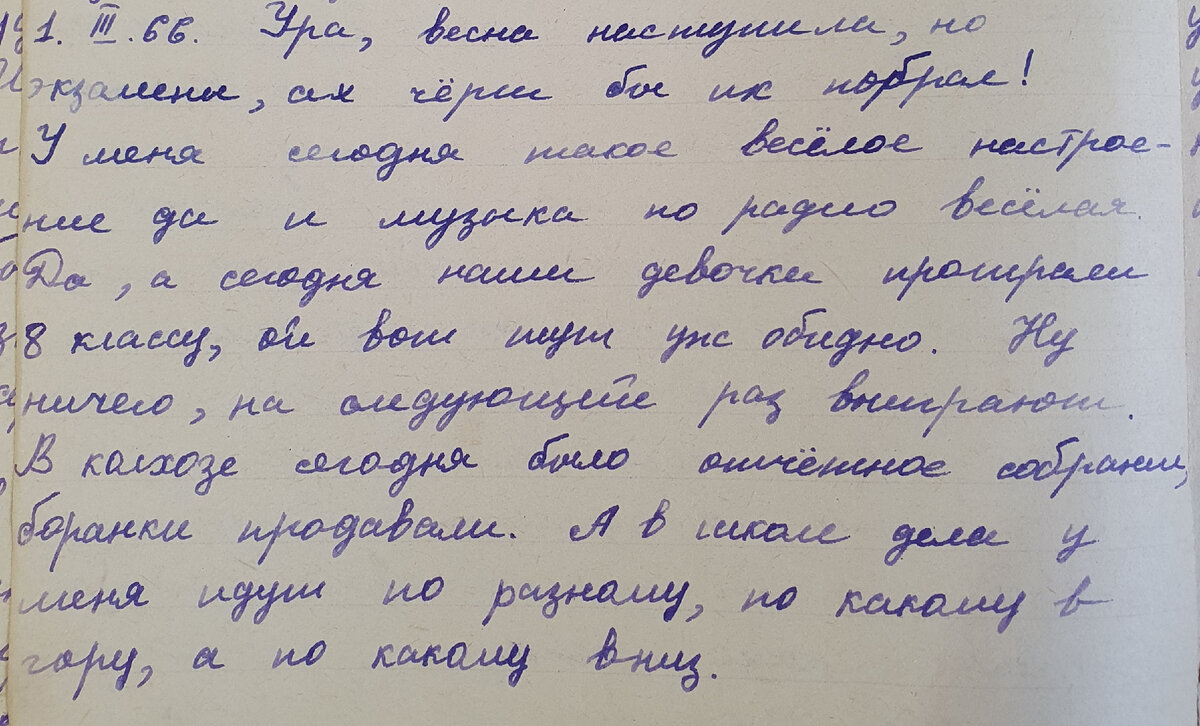 1. III. 66. Ура, весна наступила, но
экзамены, ах чёрт бы их побрал!
У меня сегодня такое весёлое настрое-
ние да и музыка по радио весёлая.
Да, а сегодня наши девочки проиграли
8 классу, ой вот тут уж обидно. Ну
ничего, на следующей раз выиграют.
В колхозе сегодня было отчётное собрание,
боранки продавали. А в школе дела у
меня идут по разному, по какому в
гору, а по какому вниз.